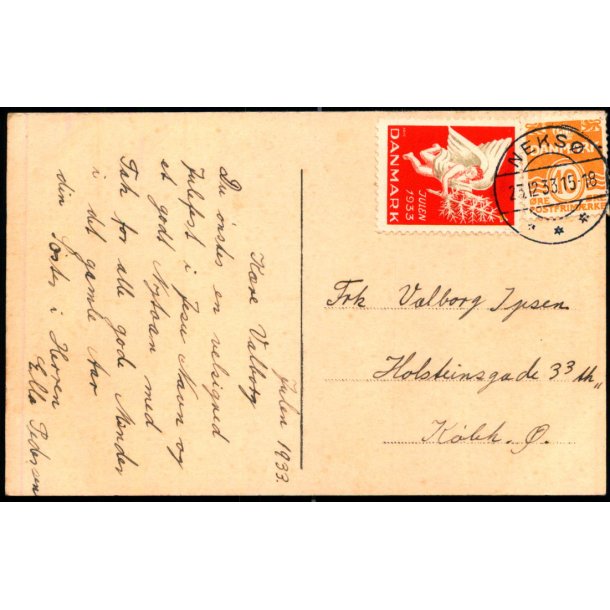 Julen 1933.
Kære Valborg
Du ønskes en velsignet
Julefest i Jesu Navn og
et godt Nytaar med
Tak for alle gode Minder
i det gamle Aar
din Søster i Herren
Ella Pedersen
JULEN
1933
DANMARK
10
ØRE
POSTFRIMÆRKE
NEKSØ
23.12.33.15-18
Frk Valborg Ipsen
Holsteinsgade 33 th,,
Købh. Ø.